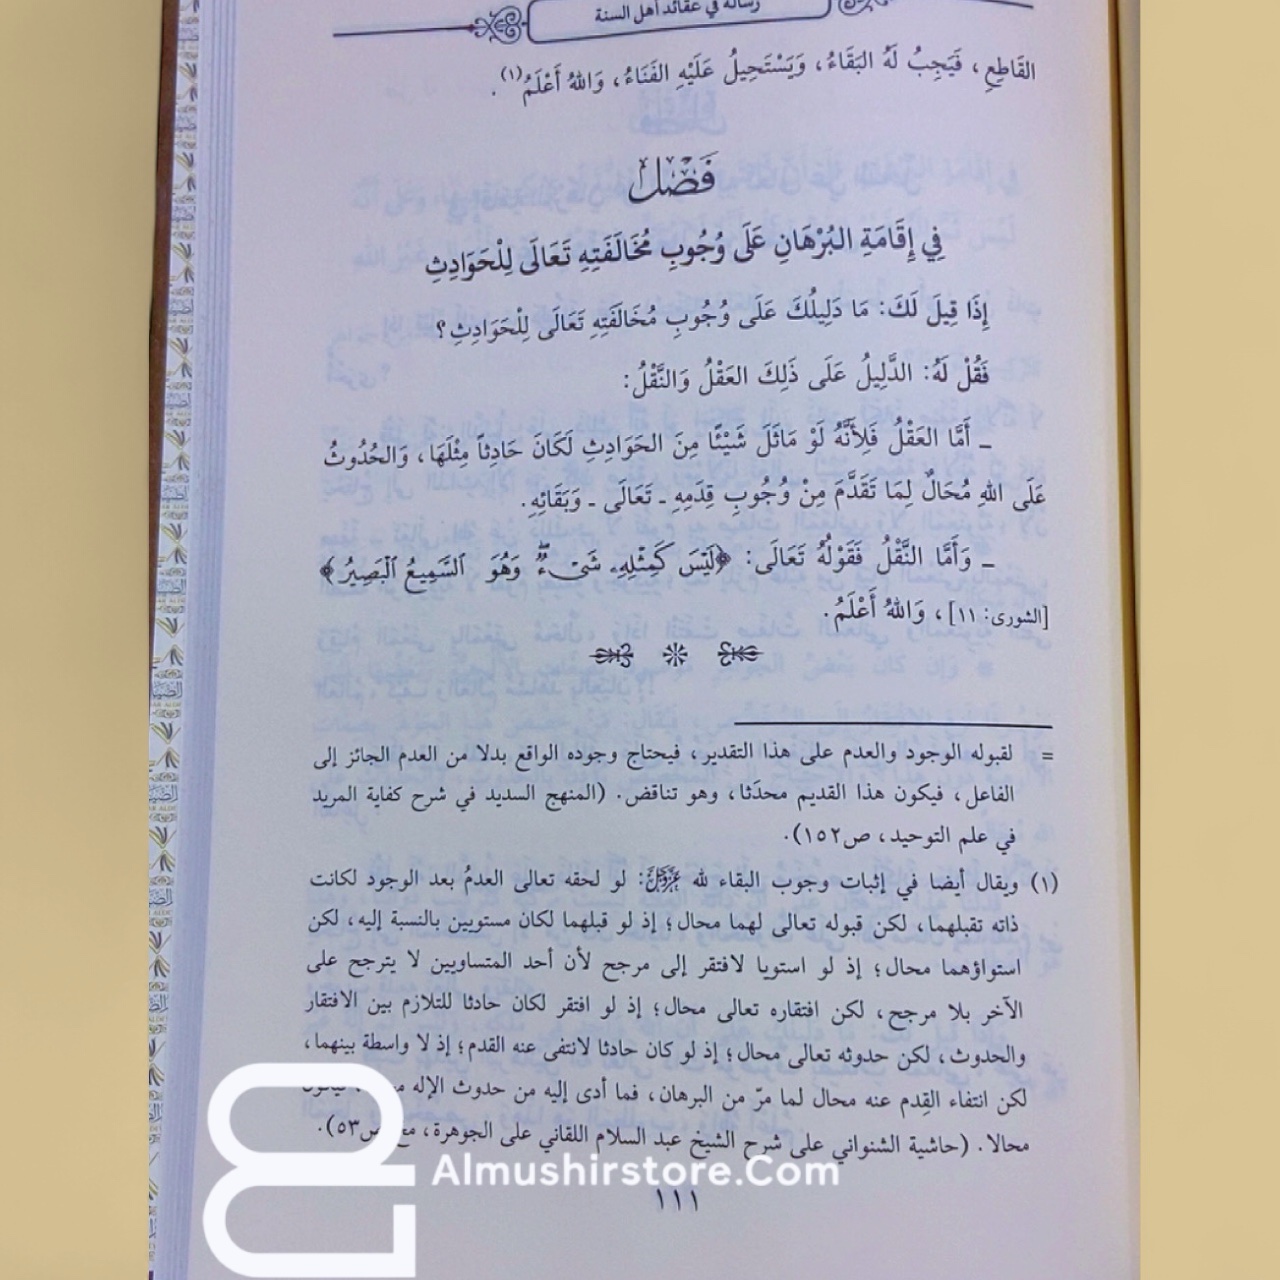 رسالة في عقائد أهل السنة
القَاطِعِ، فَيَجِبُ لَهُ البَقَاءُ، وَيَسْتَحِيلُ عَلَيْهِ الفَنَاءُ، وَاللهُ أَعْلَمُ(١).
فَصْل
فِي إِقَامَةِ البُرْهَانِ عَلَى وُجُوبِ مُخَالَفَتِهِ تَعَالَى لِلْحَوَادِثِ
إِذَا قِيلَ لَكَ: مَا دَلِيلُكَ عَلَى وُجُوبِ مُخَالَفَتِهِ تَعَالَى لِلْحَوَادِثِ؟
فَقُلْ لَهُ: الدَّلِيلُ عَلَى ذَلِكَ العَقْلُ وَالنَّقْلُ:
ـ أَمَّا العَقْلُ فَلِأَنَّهُ لَوْ مَاثَلَ شَيْئًا مِنَ الحَوَادِثِ لَكَانَ حَادِثاً مِثْلَهَا، وَالحُدُوثُ
عَلَى اللهِ مُحَالٌ لِمَا تَقَدَّمَ مِنْ وُجُوبِ قِدَمِهِ ـ تَعَالَى ـ وَبَقَائِهِ.
ـ وَأَمَّا النَّقْلُ فَقَوْلُهُ تَعَالَى: ﴿لَيْسَ كَمِثْلِهِۦ شَىْءٌۖ وَهُوَ ٱلسَّمِيعُ ٱلْبَصِيرُ﴾
[الشورى: ١١]، وَاللهُ أَعْلَمُ.
= لقبوله الوجود والعدم على هذا التقدير، فيحتاج وجوده الواقع بدلا من العدم الجائز إلى
الفاعل، فيكون هذا القديم محدَثا، وهو تناقض. (المنهج السديد في شرح كفاية المريد
في علم التوحيد، ص١٥٢).
(١) ويقال أيضا في إثبات وجوب البقاء لله عَزَّوَجَلَّ: لو لحقه تعالى العدمُ بعد الوجود لكانت
ذاته تقبلهما، لكن قبوله تعالى لهما محال؛ إذ لو قبلهما لكان مستويين بالنسبة إليه، لكن
استواؤهما محال؛ إذ لو استويا لافتقر إلى مرجح لأن أحد المتساويين لا يترجح على
الآخر بلا مرجح، لكن افتقاره تعالى محال؛ إذ لو افتقر لكان حادثا للتلازم بين الافتقار
والحدوث، لكن حدوثه تعالى محال؛ إذ لو كان حادثا لانتفى عنه القدم؛ إذ لا واسطة بينهما،
لكن انتفاء القِدم عنه محال لما مرّ من البرهان، فما أدى إليه من حدوث الإله
محالا. (حاشية الشنواني على شرح الشيخ عبد السلام اللقاني على الجوهرة، ص٥٣).
Almushirstore.Com
١١١